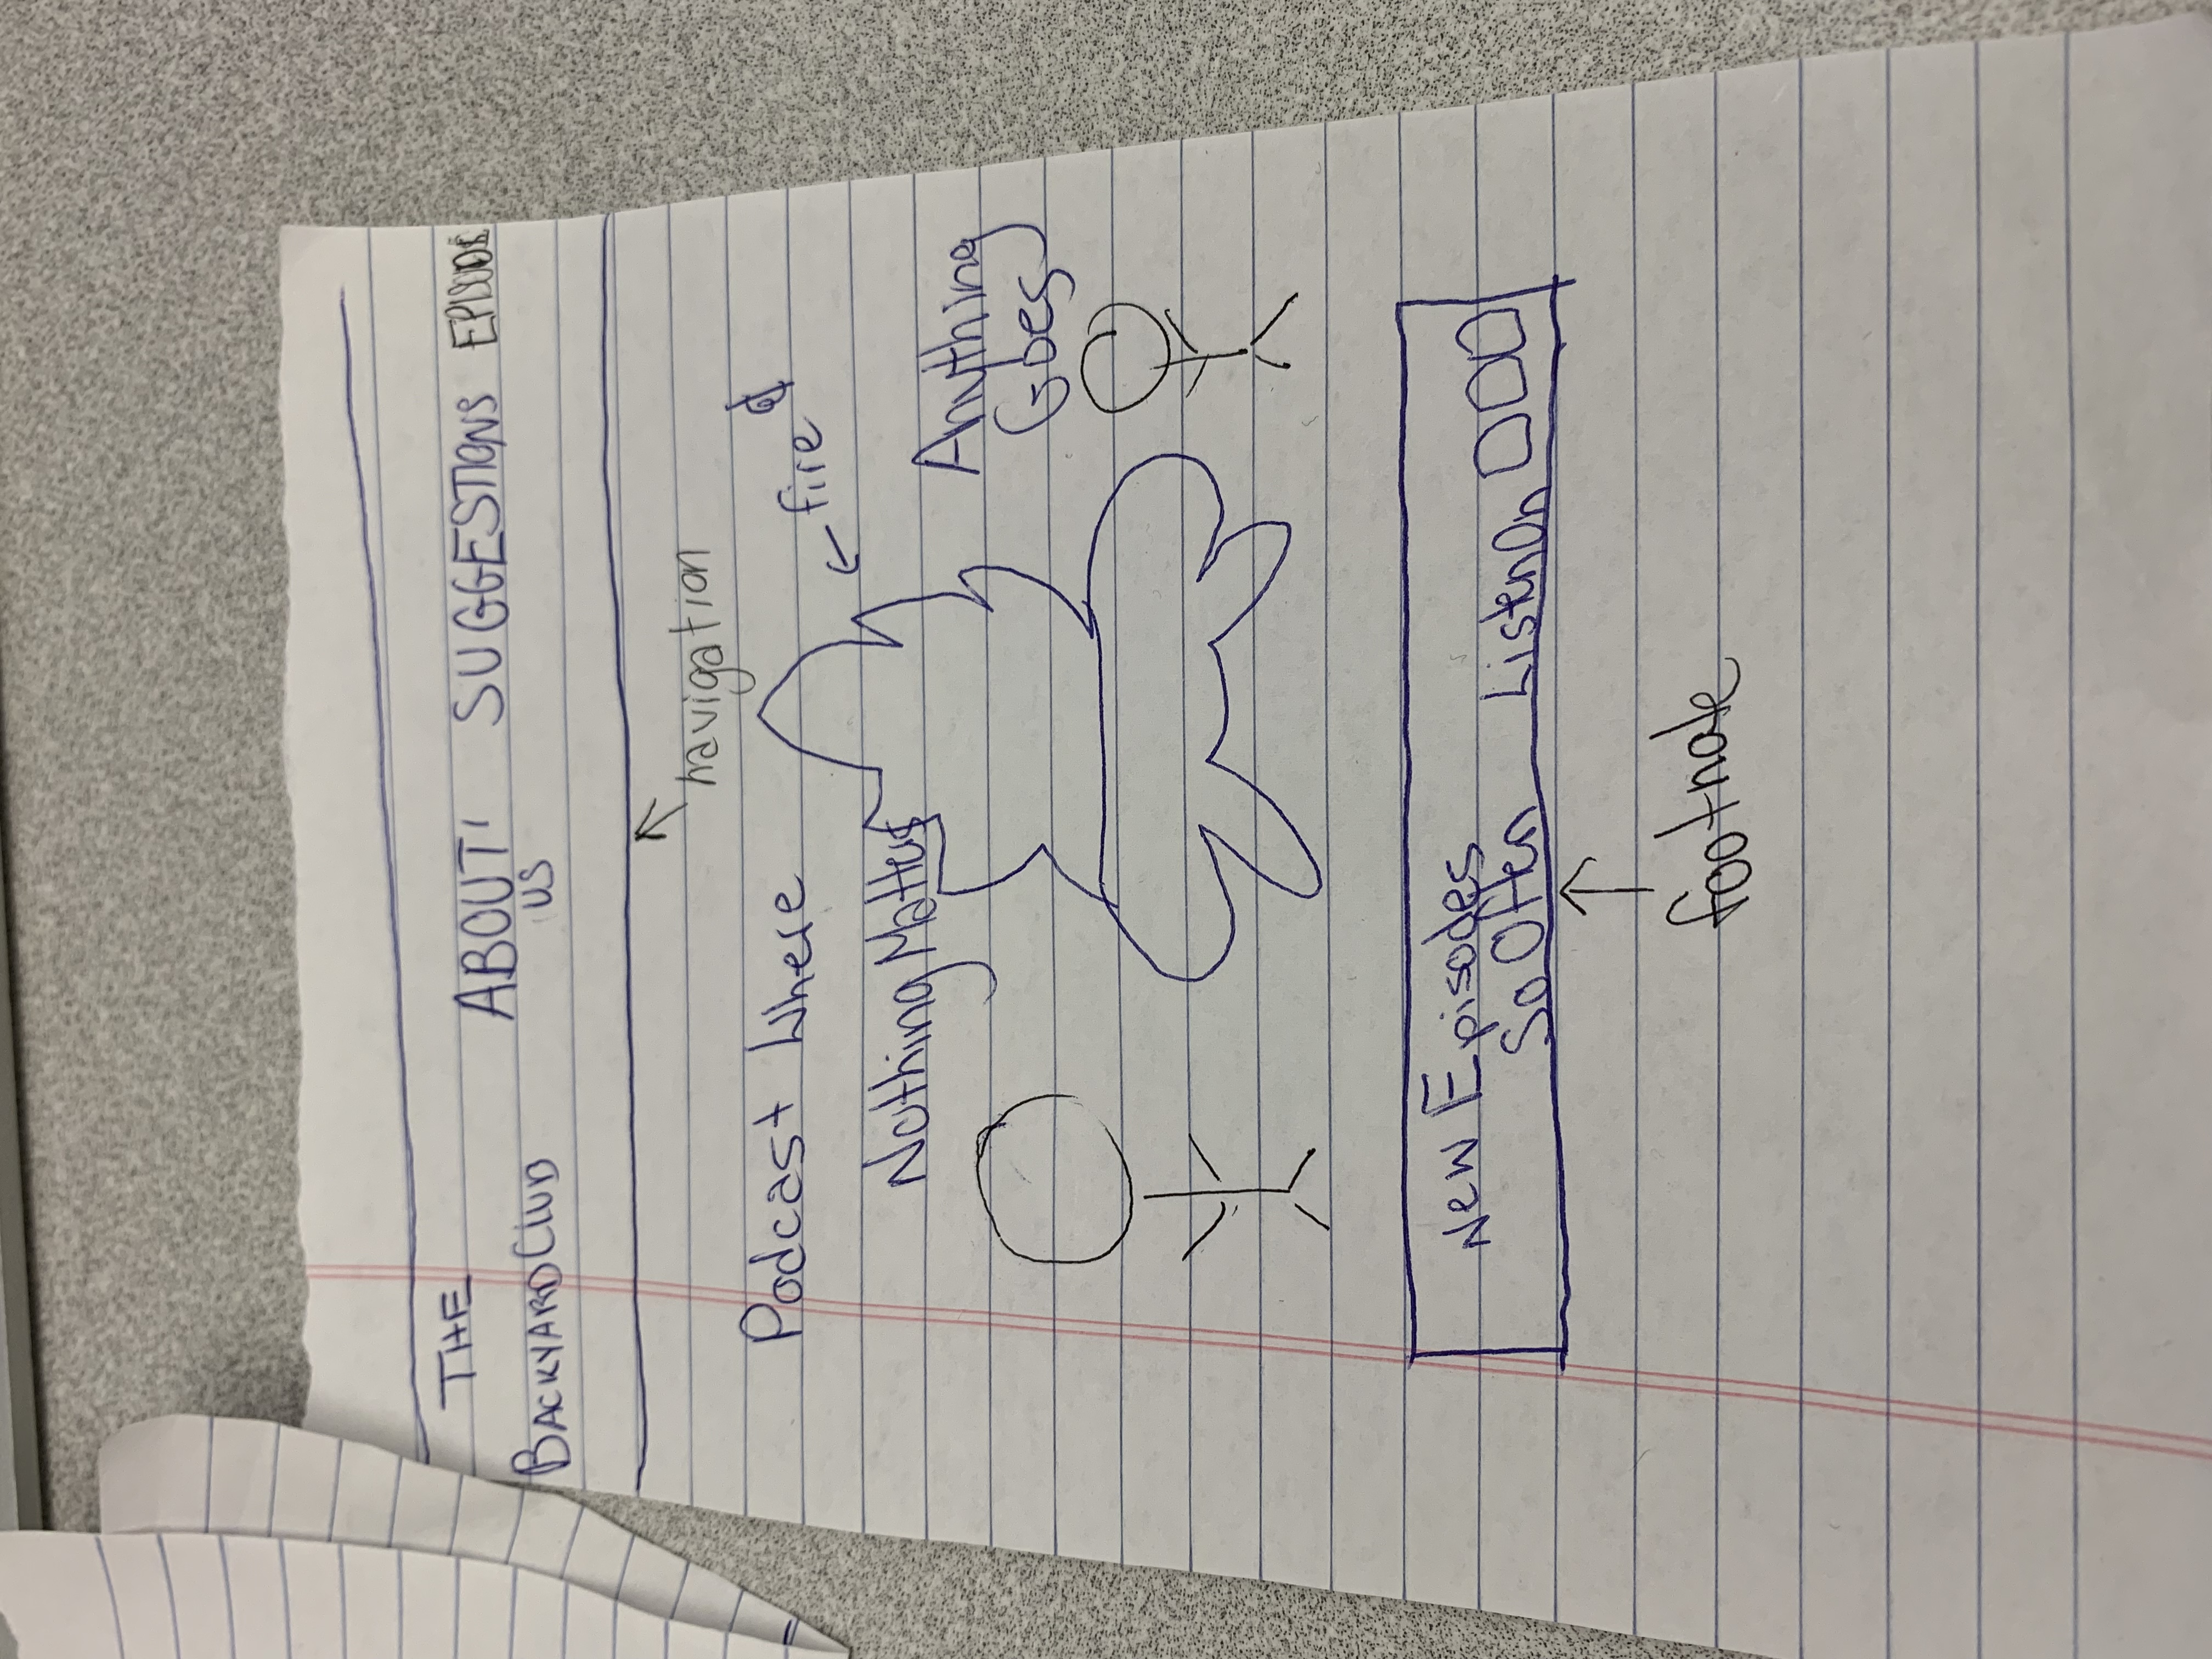 THE
BACKYARD CLUB
ABOUT
US
SUGGESTIONS
EPISODE
navigation
Podcast Where
fire
Nothing Matters
Anything
Goes
New Episodes
So Often
Listen On
footnote